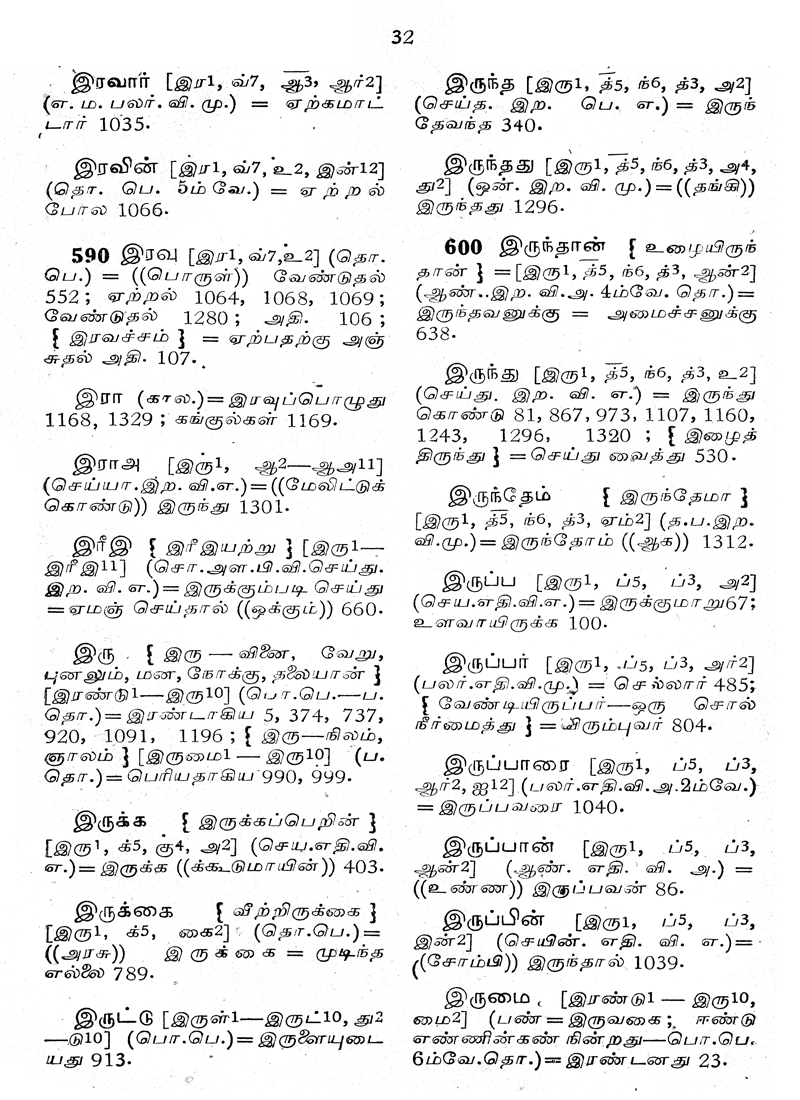 32
இரவார் [இர1, வ்7, ஆ3, ஆர்2]
(எ. ம. பலர். வி. மு.) = ஏற்கமாட்
டார் 1035.
இரவின் [இர1, வ்7, உ2, இன்12]
(தொ. பெ. 5ம் வே.) = ஏற்றல்
போல 1066.
590 இரவு [இர1, வ்7, உ2] (தொ.
பெ.) = ((பொருள்)) வேண்டுதல்
552 ; ஏற்றல் 1064, 1068, 1069 ;
வேண்டுதல் 1280 ; அதி. 106 ;
{ இரவச்சம் } = ஏற்பதற்கு அஞ்
சுதல் அதி. 107.
இரா (கால.)=இரவுப்பொழுது
1168, 1329 ; கங்குல்கள் 1169.
இராஅ [இரு1, ஆ2—ஆஅ11]
(செய்யா.இற. வி.எ.)=((மேலிட்டுக்
கொண்டு)) இருந்து 1301.
இரீஇ { இரீஇயற்று } [இரு1—
இரீஇ11] (சொ.அள.பி.வி.செய்து.
இற. வி. எ.)=இருக்கும்படி செய்து
=ஏமஞ் செய்தால் ((ஒக்கும்)) 660.
இரு { இரு — வினை, வேறு,
புனலும், மன, நோக்கு, தலையான் }
[இரண்டு1—இரு10] (பொ.பெ.—ப.
தொ.)=இரண்டாகிய 5, 374, 737,
920, 1091, 1196 ; { இரு—நிலம்,
ஞாலம் } [இருமை1 — இரு10] (ப.
தொ.)=பெரியதாகிய 990, 999.
இருக்க { இருக்கப்பெறின் }
[இரு1, க்5, கு4, அ2] (செய.எதி.வி.
எ.)=இருக்க ((க்கூடுமாயின்)) 403.
இருக்கை { வீற்றிருக்கை }
[இரு1, க்5, கை2] (தொ.பெ.)=
((அரசு)) இருக்கை = முடிந்த
எல்லை 789.
இருட்டு [இருள்1—இருட்10, து2
—டு10] (பொ.பெ.)=இருளையுடை
யது 913.
இருந்த [இரு1, த்5, ந்6, த்3, அ2]
(செய்த. இற. பெ. எ.) = இருந்
தேவந்த 340.
இருந்தது [இரு1, த்5, ந்6, த்3, அ4,
து2] (ஒன். இற. வி. மு.)=((தங்கி))
இருந்தது 1296.
600 இருந்தான் { உழையிருந்
தான் } =[இரு1, த்5, ந்6, த்3, ஆன்2]
(ஆண்..இற. வி.அ. 4ம்வே. தொ.)=
இருந்தவனுக்கு = அமைச்சனுக்கு
638.
இருந்து [இரு1, த்5, ந்6, த்3, உ2]
(செய்து. இற. வி. எ.) = இருந்து
கொண்டு 81, 867, 973, 1107, 1160,
1243, 1296, 1320 ; { இழைத்
திருந்து } =செய்து வைத்து 530.
இருந்தேம் { இருந்தேமா }
[இரு1, த்5, ந்6, த்3, ஏம்2] (த.ப.இற.
வி.மு.)=இருந்தோம் ((ஆக)) 1312.
இருப்ப [இரு1, ப்5, ப்3, அ2]
(செய.எதி.வி.எ.)=இருக்குமாறு67;
உளவாயிருக்க 100.
இருப்பர் [இரு1, ப்5, ப்3, அர்2]
(பலர்.எதி.வி.மு.) = செல்லார் 485;
{ வேண்டியிருப்பர்—ஒரு சொல்
நீர்மைத்து } =விரும்புவர் 804.
இருப்பாரை [இரு1, ப்5, ப்3,
ஆர்2, ஐ12] (பலர்.எதி.வி.அ.2ம்வே.)
= இருப்பவரை 1040.
இருப்பான் [இரு1, ப்5, ப்3,
ஆன்2] (ஆண். எதி. வி. அ.) =
((உண்ண)) இருப்பவன் 86.
இருப்பின் [இரு1, ப்5, ப்3,
இன்2] (செயின். எதி. வி. எ.)=
((சோம்பி)) இருந்தால் 1039.
இருமை [இரண்டு1 — இரு10,
மை2] (பண்=இருவகை ; ஈண்டு
எண்ணின்கண் நின்றது—பொ.பெ.
6ம்வே.தொ.)=இரண்டனது 23.